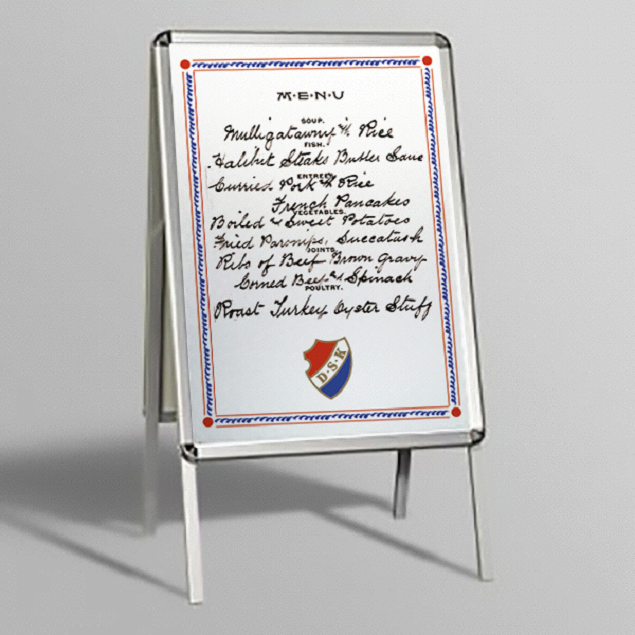 M·E·N·U
SOUP.
Mulligatawny & Rice
FISH.
Halibut Steaks Butter Sauce
ENTREES
Curried Pork & Rice
French Pancakes
VEGETABLES.
Boiled & Sweet Potatoes
Fried Parsnips, Succatash
JOINTS.
Ribs of Beef Brown Gravy
Corned Beef & Spinach
POULTRY.
Roast Turkey Oyster Stuff
D·S·K